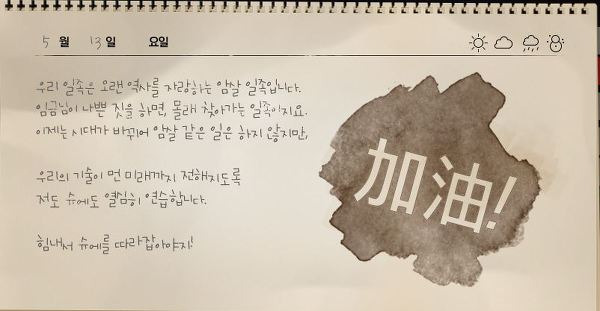 5 월 13 일 요일
우리 일족은 오랜 역사를 자랑하는 암살 일족입니다.
임금님이 나쁜 짓을 하면, 몰래 찾아가는 일족이지요.
이제는 시대가 바뀌어 암살 같은 일은 하지 않지만,
우리의 기술이 먼 미래까지 전해지도록
저도 슈에도 열심히 연습합니다.
힘내서 슈에를 따라잡아야지!
加油!